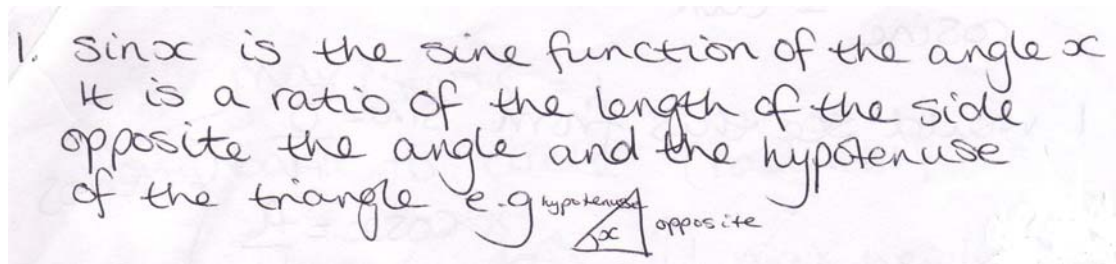 1. sinx is the sine function of the angle x
It is a ratio of the length of the side
opposite the angle and the hypotenuse
of the triangle e.g hypotenuse
x opposite